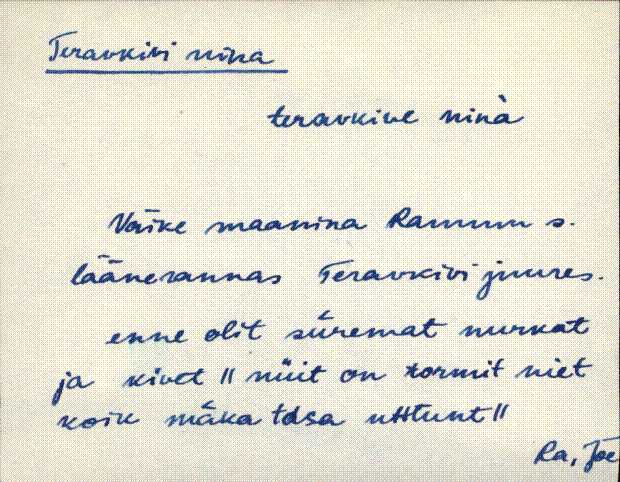 Teravkivi nina
teravkive ninà
Väike maanina Rammu s.
läänerannas Teravkivi juures.
enne olit süremat nurkat
ja kivet || nüit on tormit niet
koik mäka tasa uhtunt ||
Ra, Jõe